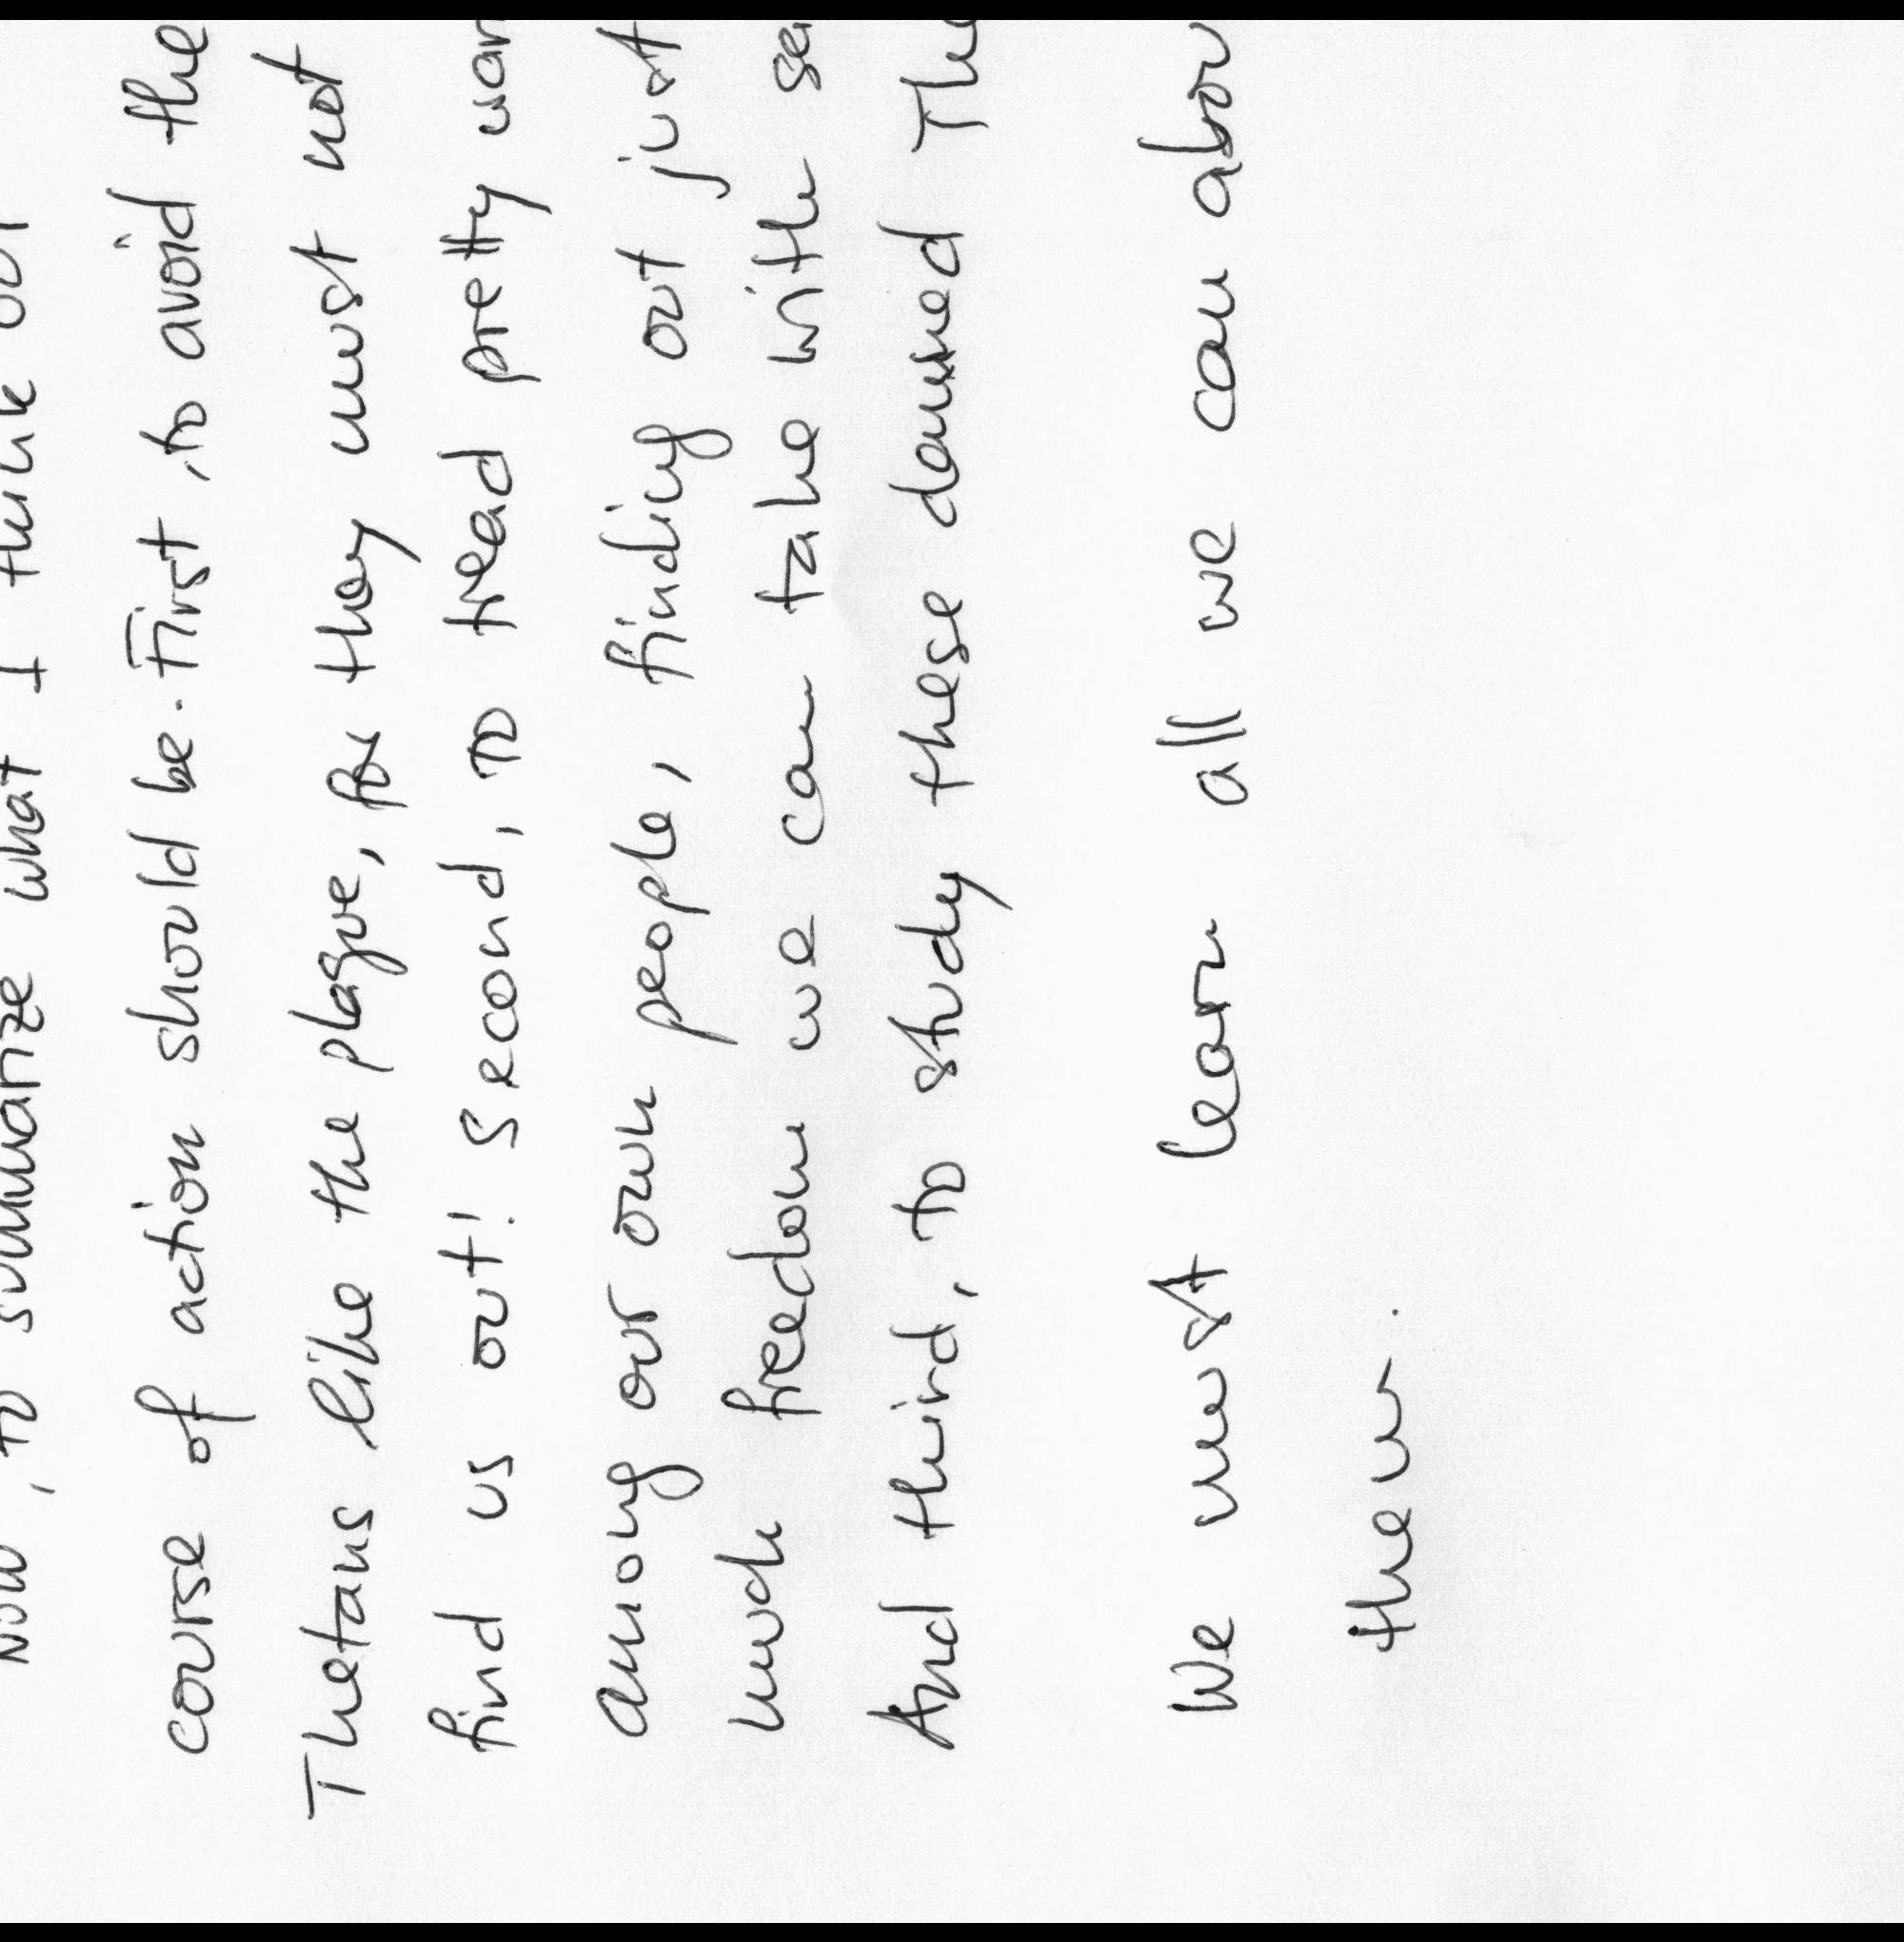 Now, to summarize what I think our
course of action should be. First, to avoid the
Thetans like the plague, for they must not
find us out! Second, to tread pretty
among our own people, finding out just
much freedom we can take with
And third, to study these damned
We must learn all we can
them.